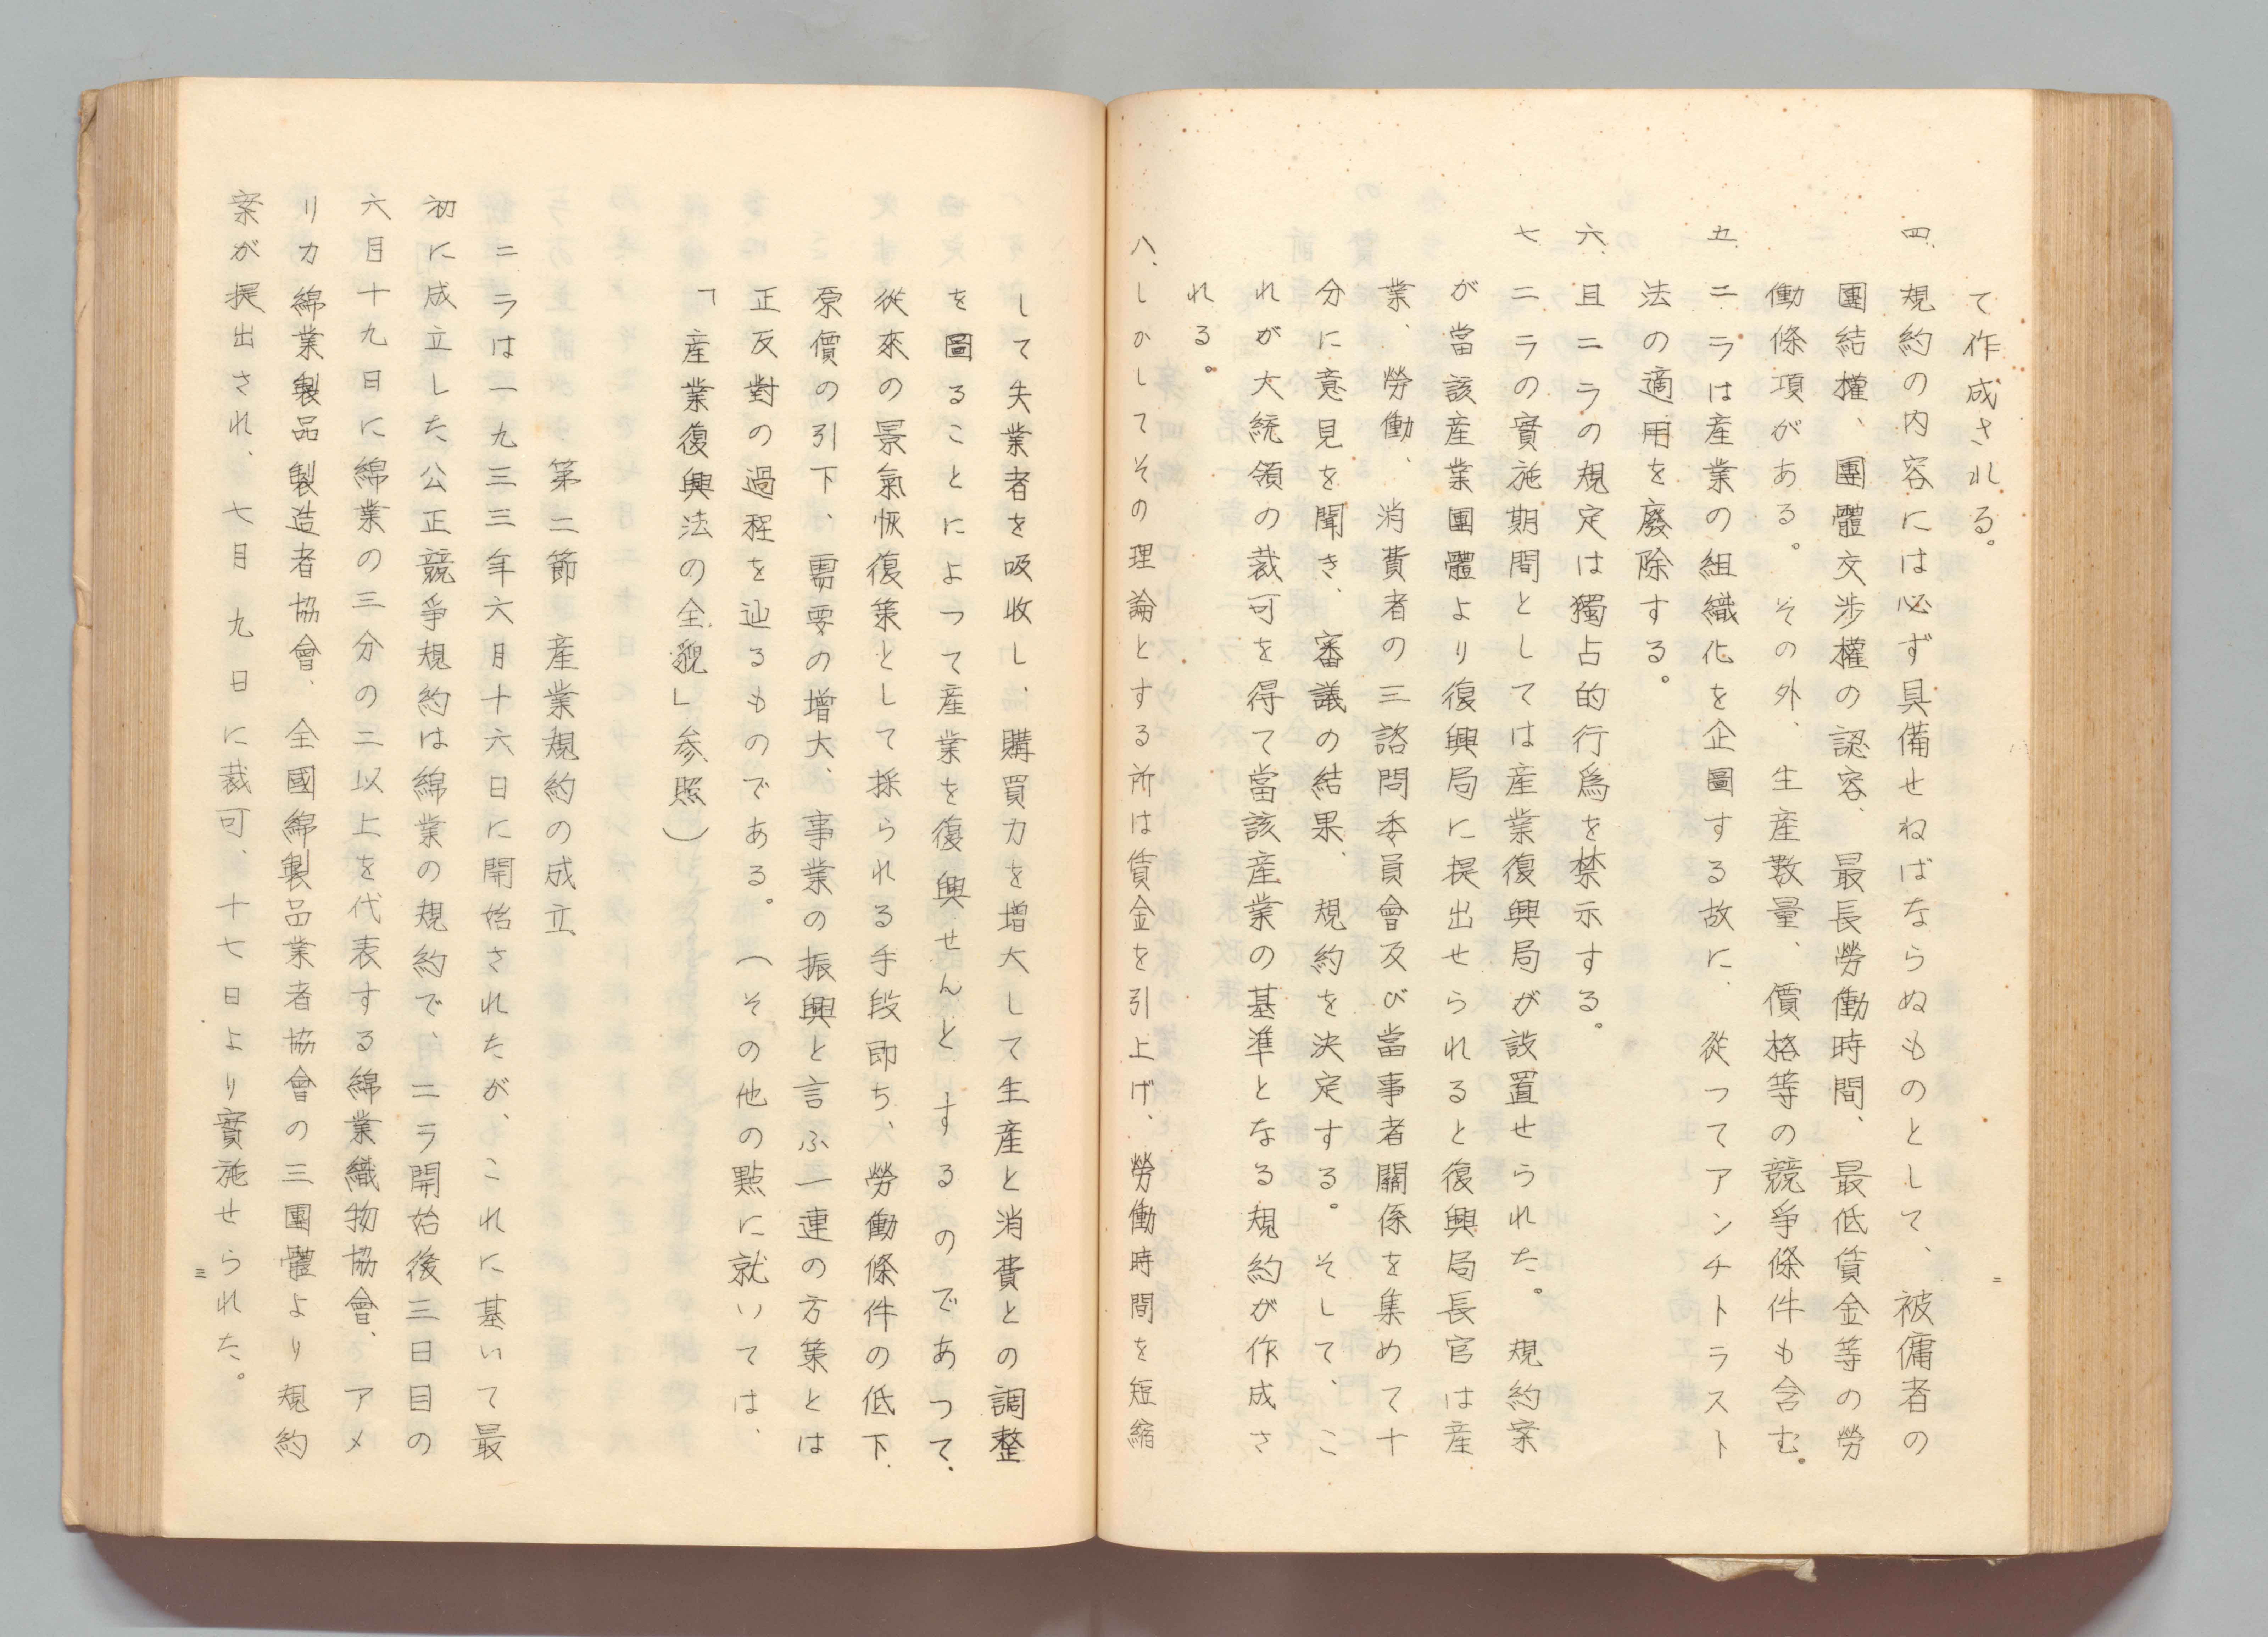 て作成される。
四、規約の内容には必ず具備せねばならぬものとして、被傭者の
團結權、團體交渉權の認容、最長勞働時間、最低賃金等の勞
働條項がある。その外、生産數量、價格等の競爭條件も含む。
五、ニラは産業の組織化を企圖する故に、從つてアンチトラスト
法の適用を廢除する。
六、且ニラの規定は獨占的行爲を禁示する。
七、ニラの實施期間としては産業復興局が設置せられた。規約案
が當該産業團體より復興局に提出せられると復興局長官は産
業、勞働、消費者の三諮問委員會及び當事者關係を集めて十
分に意見を聞き、審議の結果、規約を決定する。そして、こ
れが大統領の裁可を得て當該産業の基準となる規約が作成さ
れる。
八、しかしてその理論とする所は賃金を引上げ、勞働時間を短縮
二
して失業者を吸收し、購買力を增大して生産と消費との調整
を圖ることによつて産業を復興せんとするのであつて、
從來の景氣恢復策として採られる手段即ち、勞働條件の低下、
原價の引下、需要の增大、事業の振興と言ふ一連の方策とは
正反對の過程を辿るものである。（その他の點に就いては、
「産業復興法の全貌」参照）
第二節　産業規約の成立
ニラは一九三三年六月十六日に開始されたが、これに基いて最
初に成立した公正競爭規約は綿業の規約で、ニラ開始後三日目の
六月十九日に綿業の三分の二以上を代表する綿業織物協會、アメ
リカ綿業製品製造者協會、全國綿製品業者協會の三團體より規約
案が提出され、七月九日に裁可、十七日より實施せられた。
三